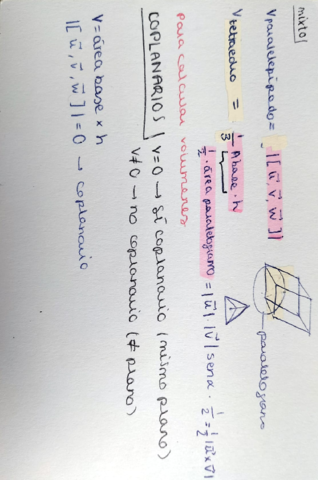 mixto
V paralelepípedo = |[u⃗, v⃗, w⃗]|
paralelogramo
V tetraedro = 1/3 Abase · h
1/2 · área paralelogramo = |u⃗| · |v⃗| senα · 1/2 = 1/2 |u⃗ x v⃗|
para calcular volúmenes
COPLANARIOS | V=0 → sí coplanario (mismo plano)
V≠0 → no coplanario (≠ plano)
V = área base x h
|[u⃗, v⃗, w⃗]| = 0 → coplanario